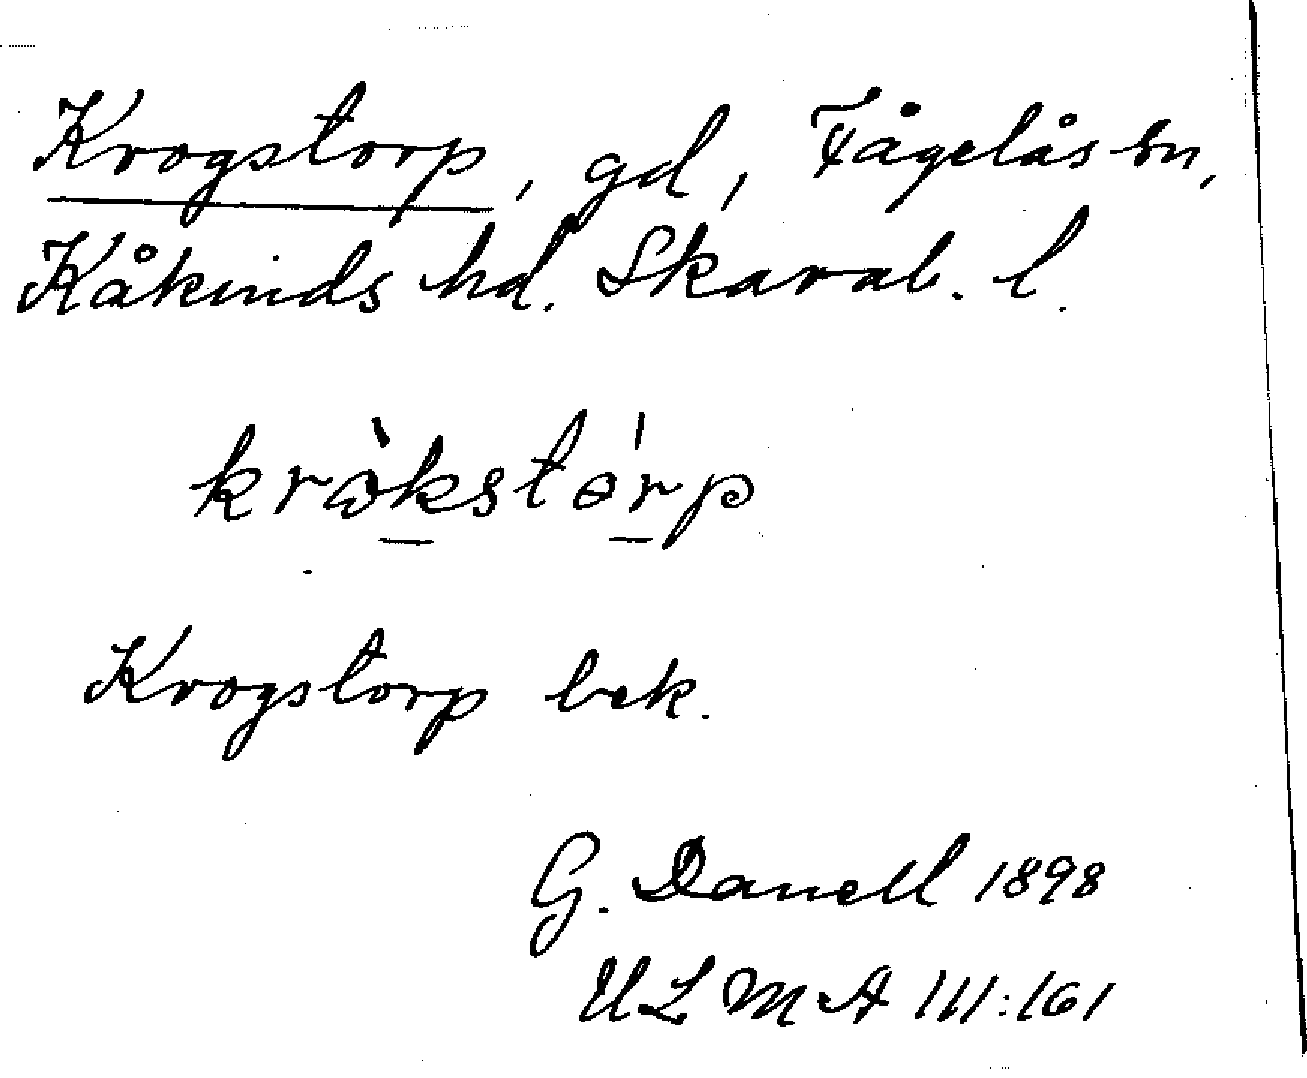 Krogstorp, gd, Fågelås sn,
Kåkinds hd. Skarab. l.
krɷ̀kstórp
Krogstorp bek.
G. Danell 1898
ULMA 111:161